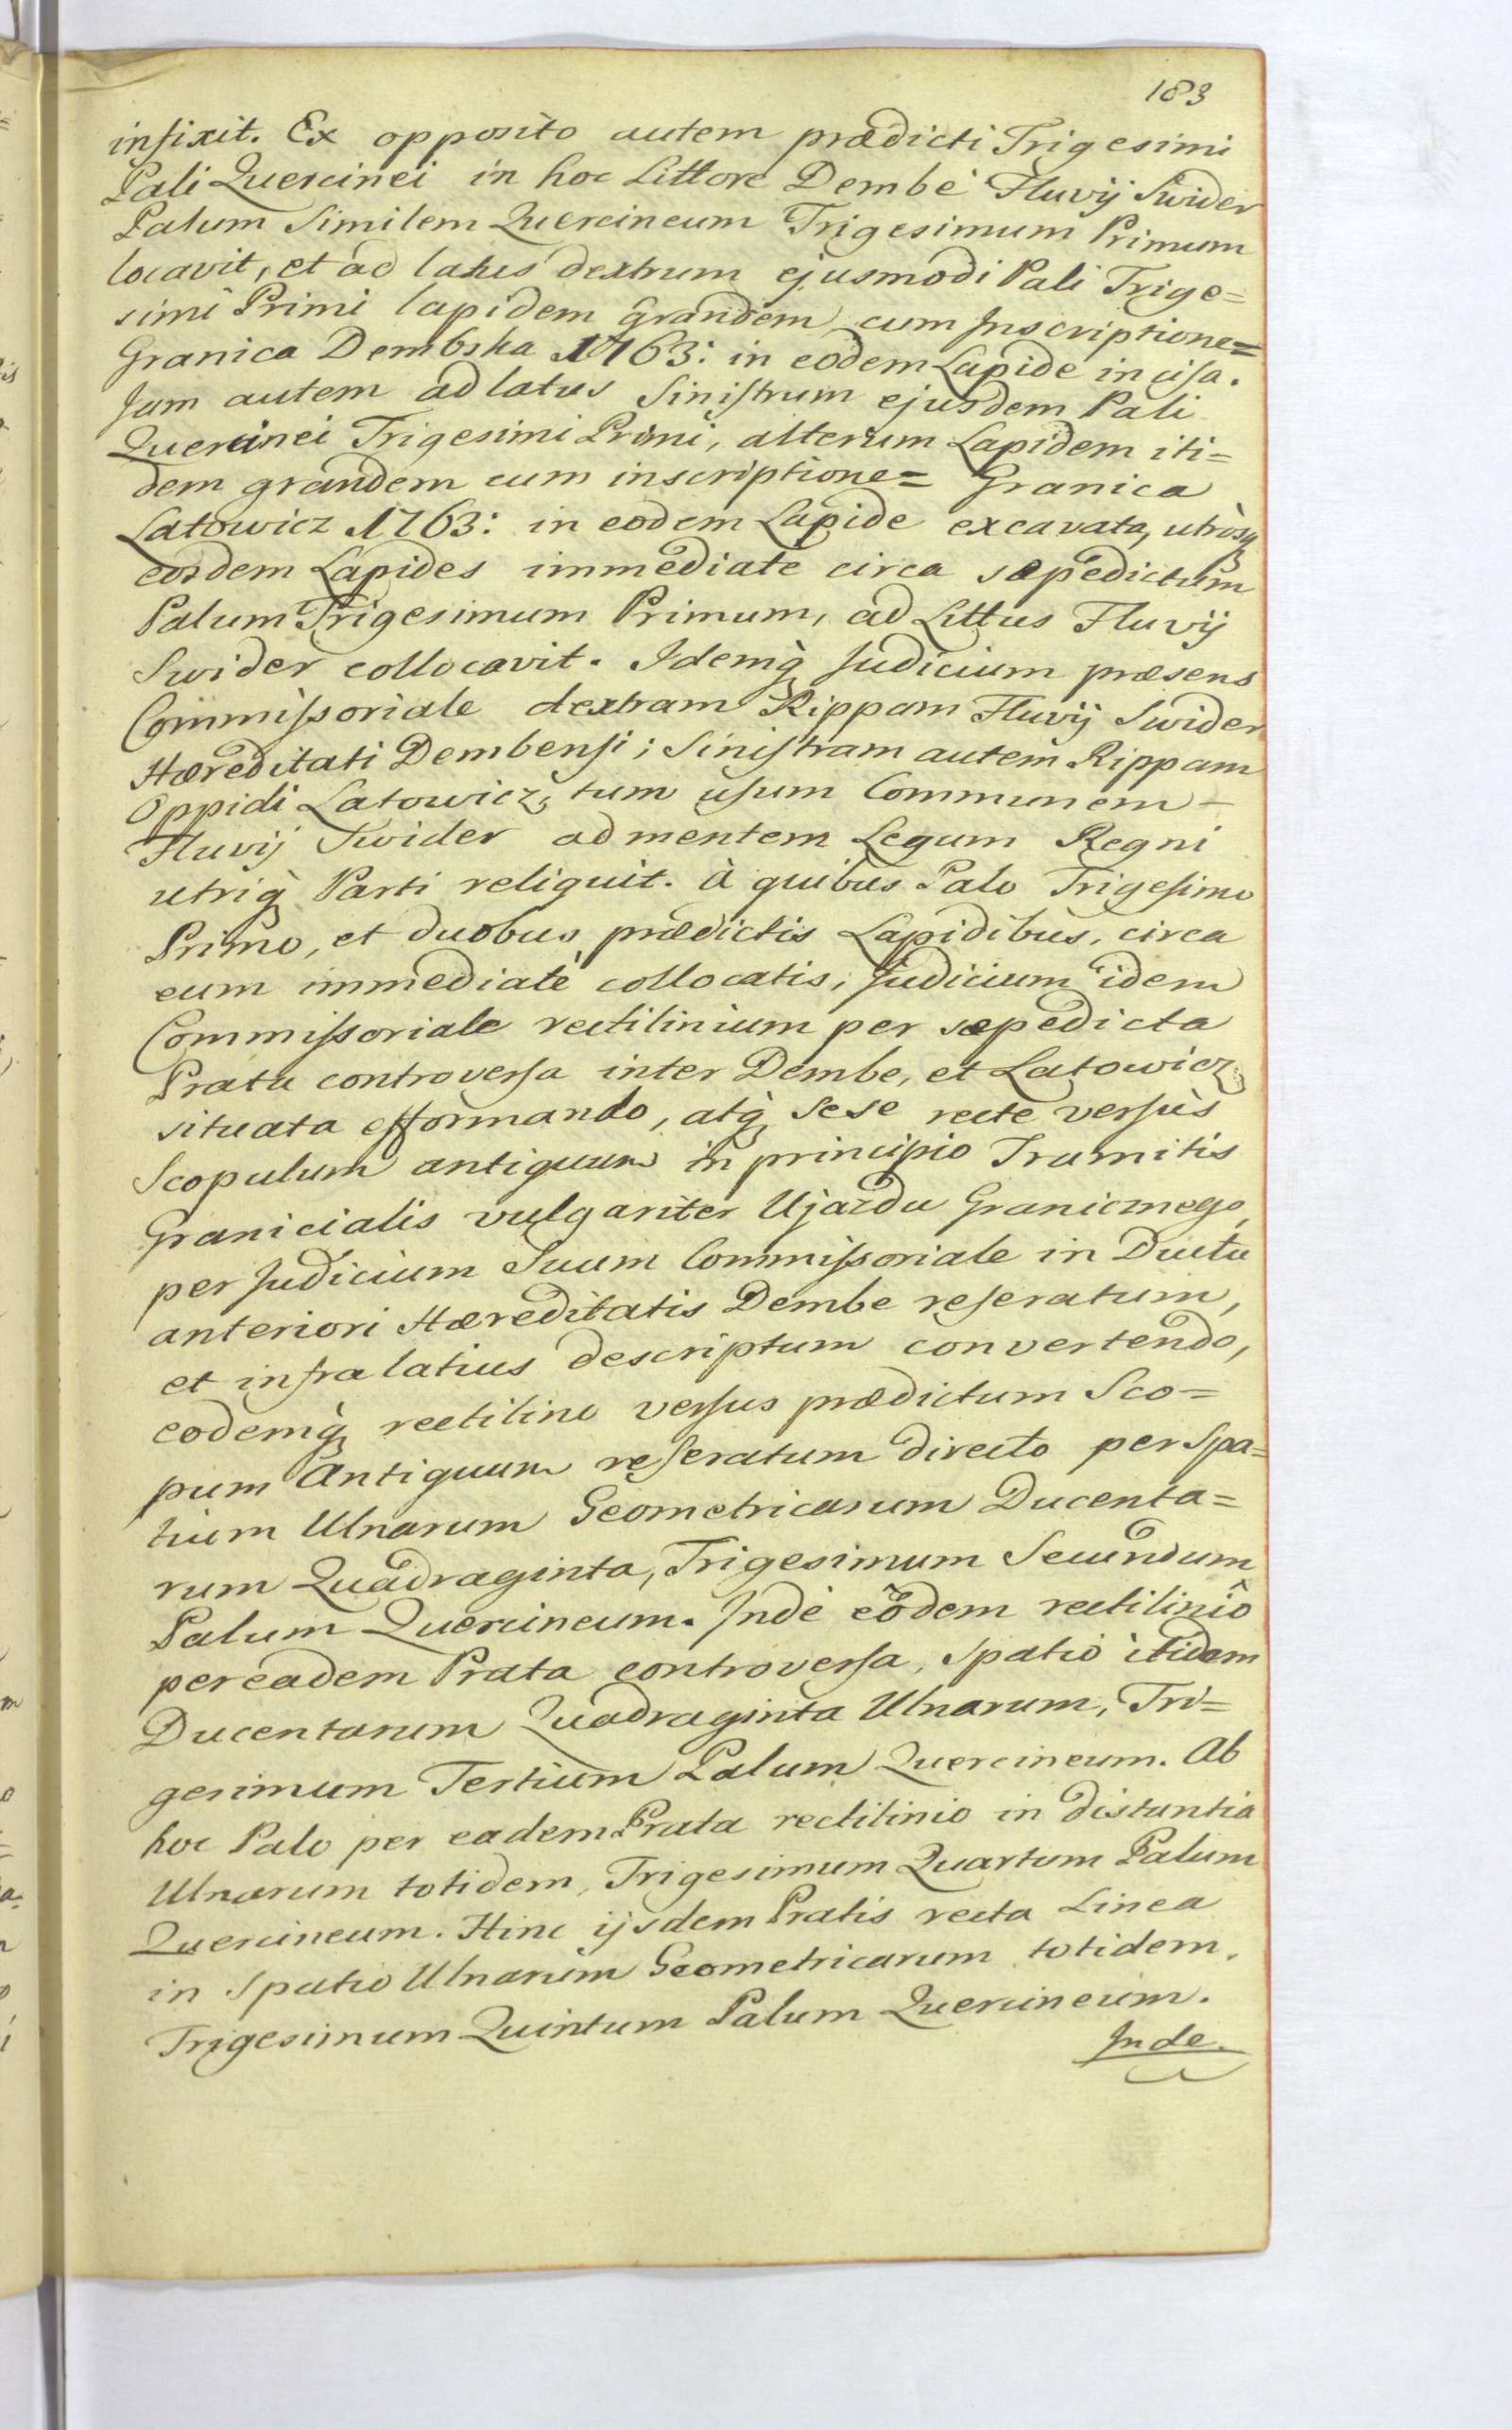 183
infixit. Ex opposito autem prædicti Trigesimi
Pali Quercinei in hoc Littore Dembe Fluvij Swider
Palum Similem Quercineum Trigesimum Primum
locavit, et ad latus dextrum ejusmodi Pali Trige=
simi Primi lapidem grandem cum Inscriptione=
Granica Dembska 1763: in eodem Lapide incisa.
Jam autem ad latus Sinistrum ejusdem Pali
Quercinei Trigesimi Primi, alterum Lapidem iti=
dem grandem cum inscriptione= Granica
Latowicz 1763: in eodem Lapide excavata, utrosq
eosdem Lapides immediate circa sæpedictum
Palum Trigesimum Primum, ad Littus Fluvij
Swider collocavit. Idemq Judicium præsens
Commissoriale dextram Rippam Fluvij Swider
Hæreditati Dembensi; Sinistram autem Rippam
Oppidi Latowicz, tum usum Communem –
Fluvij Swider ad mentem Legum Regni
utriq Parti reliquit. à quibus Palo Trigesimo
Primo, et duobus prædictis Lapidibus, circa
eum immediatè collocatis, Judicium idem
Commissoriale rectilinium per sæpedicta
Prata controversa inter Dembe, et Latowicz
situata efformando, atq sese recte versùs
Scopulum antiquum in principio Tramitis
Granicialis vulgariter Ujazdu Granicznego,
per Judicium Suum Commissoriale in Ductu
anteriori Hæreditatis Dembe reseratum,
et infra latius descriptum convertendo,
eodemq rectiline versus prædictum Sco=
pum Antiquum reseratum directo per Spa=
tium Ulnarum Geometricarum Ducenta=
rum Quadraginta, Trigesimum Secundum
Palum Quercineum. Inde eôdem rectiliniô
per eadem Prata controversa, spatio itidem
Ducentarum Quadraginta Ulnarum, Tri=
gesimum Tertium Palum Quercineum. Ab
hoc Palo per eadem Prata rectilinio in distantia
Ulnarum totidem, Trigesimum Quartum Palum
Quercineum. Hinc ijsdem Pratis recta Linea
in Spatio Ulnarum Geometricarum totidem,
Trigesimum Quintum Palum Quercineum.
Inde.